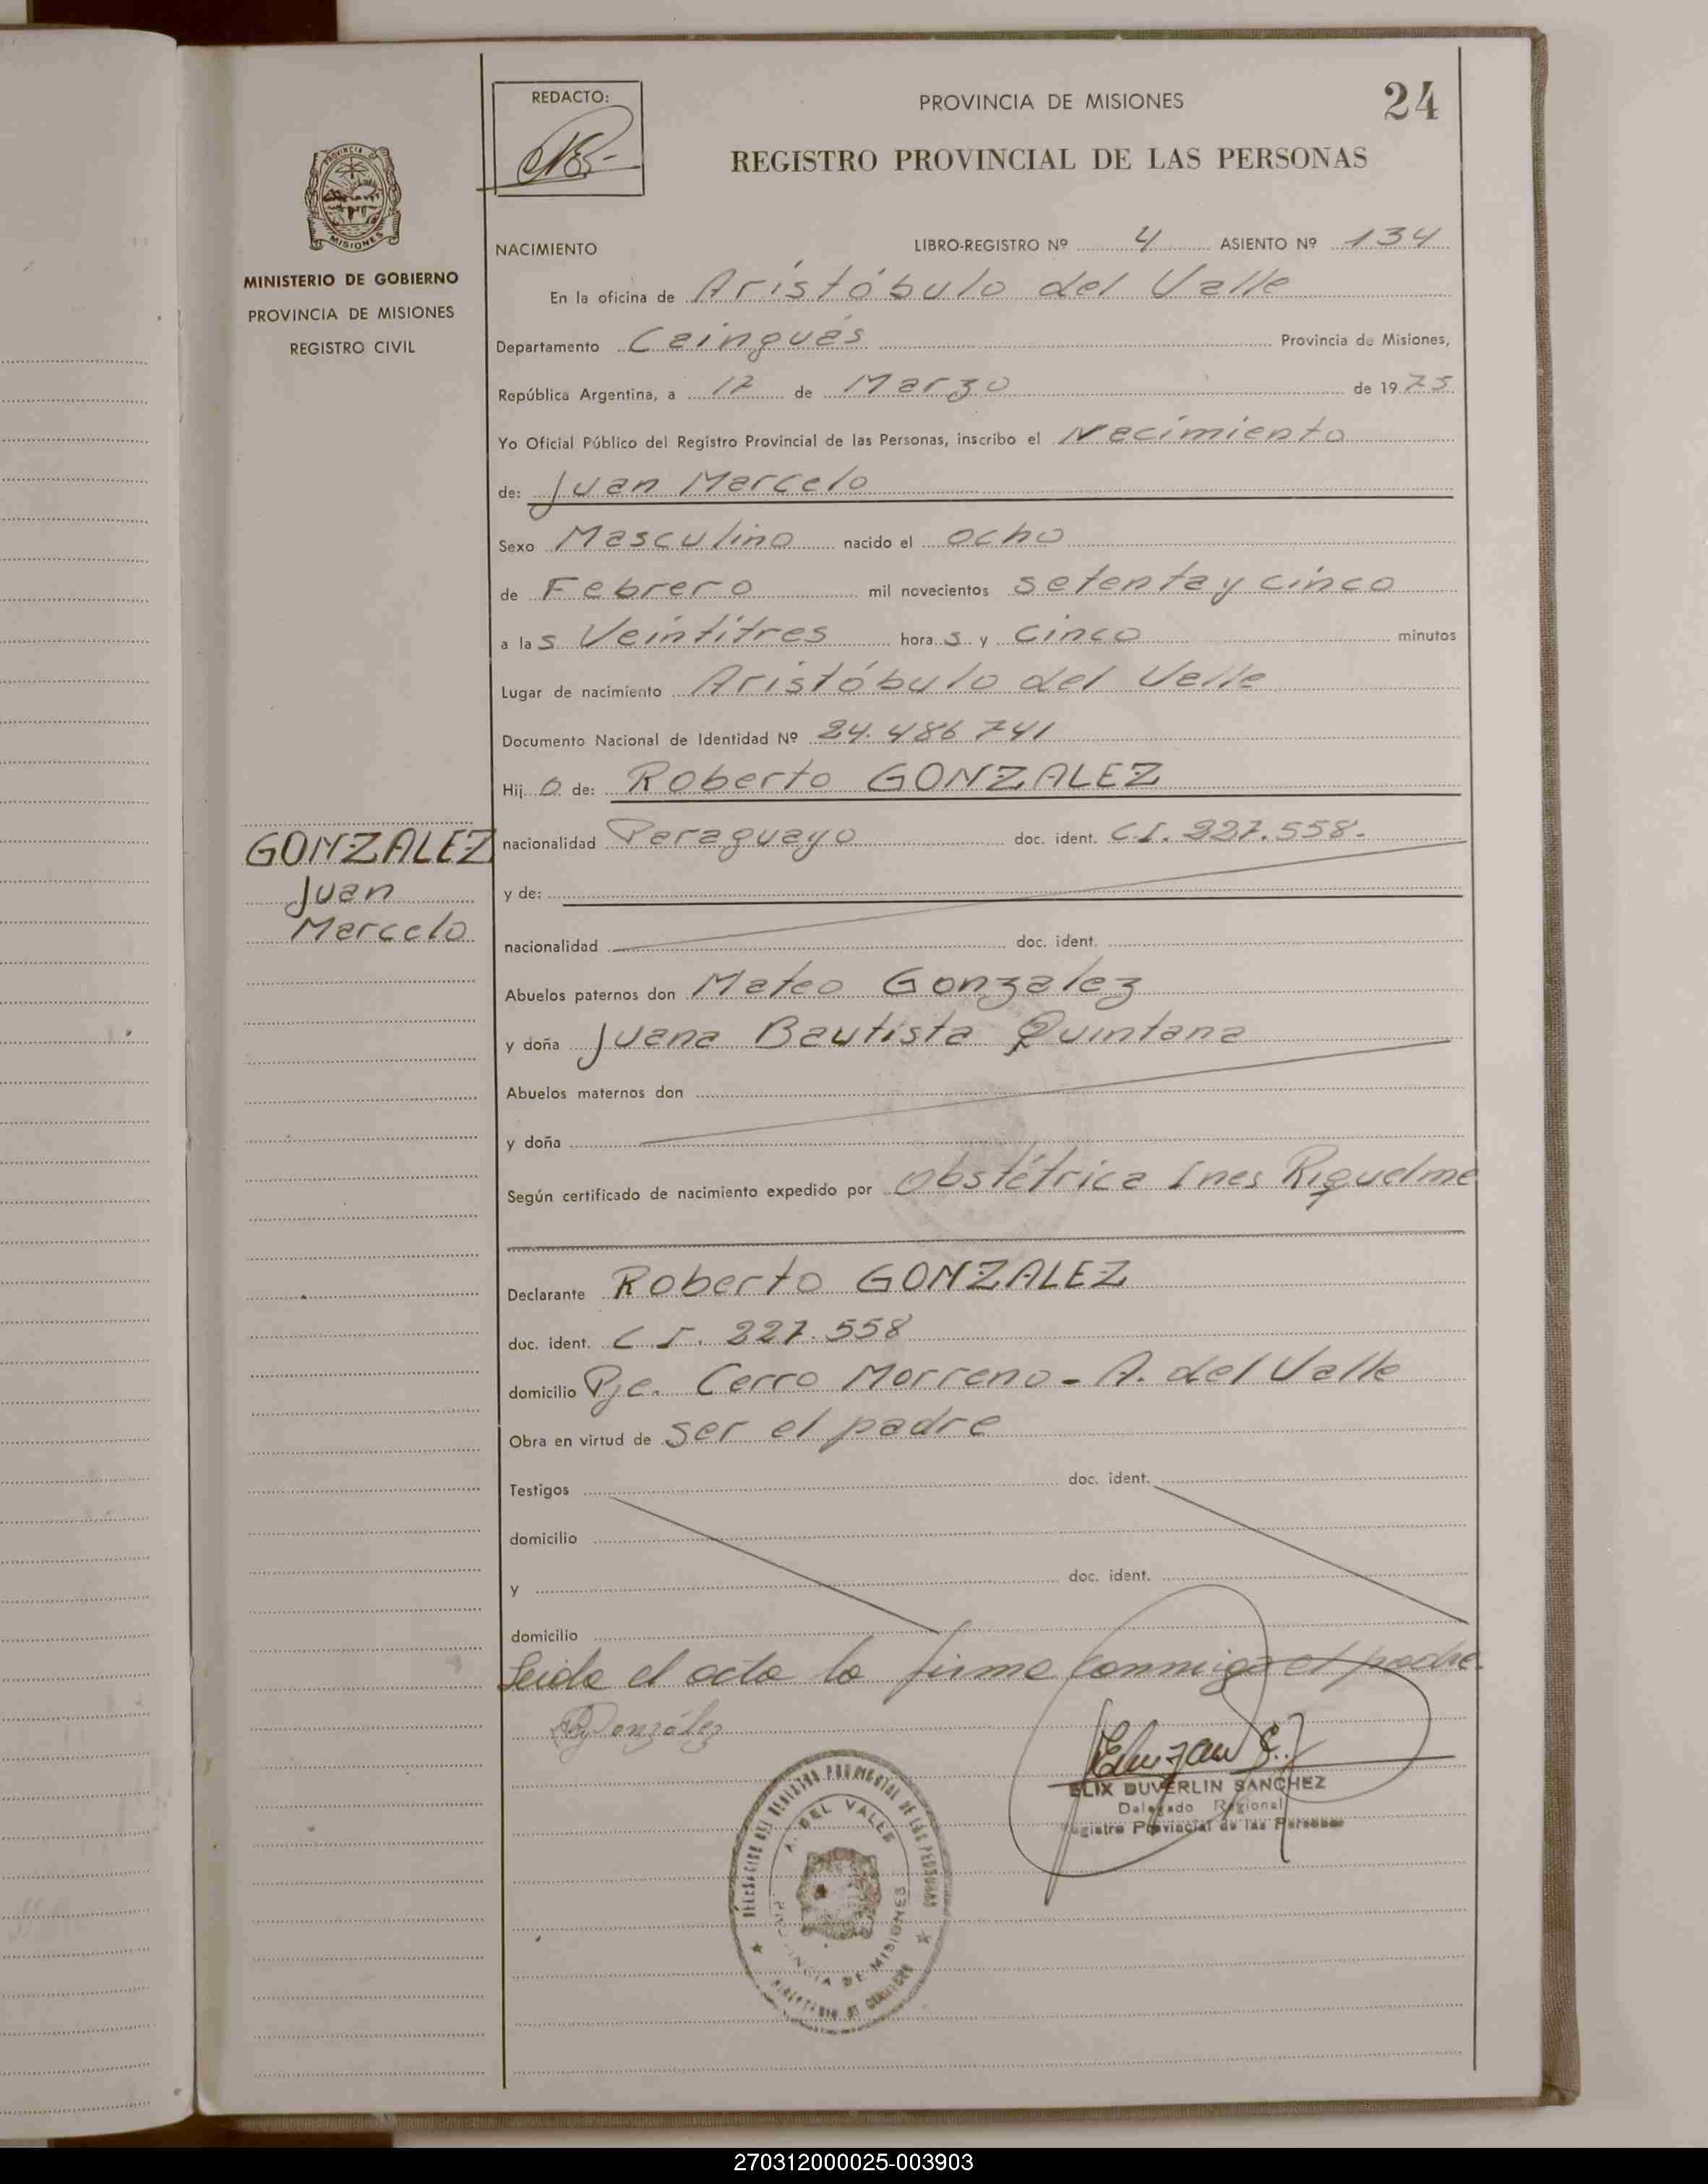 REDACTO:
PROVINCIA DE MISIONES
24
REGISTRO PROVINCIAL DE LAS PERSONAS
PROVINCIA
MISIONES
MINISTERIO DE GOBIERNO
PROVINCIA DE MISIONES
REGISTRO CIVIL
NACIMIENTO LIBRO-REGISTRO Nº 4 ASIENTO Nº 134
En la oficina de Aristóbulo del Valle
Departamento Cainguás Provincia de Misiones,
República Argentina, a 17 de Marzo de 1975
Yo Oficial Público del Registro Provincial de las Personas, inscribo el Nacimiento
de: Juan Marcelo
Sexo Masculino nacido el ocho
de Febrero mil novecientos setenta y cinco
a las Veintitres horas y cinco minutos
Lugar de nacimiento Aristóbulo del Valle
Documento Nacional de Identidad Nº 24.486 741
Hijo de: Roberto GONZALEZ
nacionalidad Paraguayo doc. ident. C.I. 227.558.
GONZALEZ
Juan
Marcelo
y de:
nacionalidad doc. ident.
Abuelos paternos don Mateo Gonzalez
y doña Juana Bautista Quintana
Abuelos maternos don
y doña
Según certificado de nacimiento expedido por Obstétrica Ines Riquelme
Declarante Roberto GONZALEZ
doc. ident. C I. 227.558
domicilio Pje. Cerro Morreno - A. del Valle
Obra en virtud de ser el padre
Testigos doc. ident.
domicilio
y doc. ident.
domicilio
Leida el acta la firma conmigo el padre.
González
ELIX DUVERLIN SANCHEZ
Delegado Regional
Registro Provincial de las Personas
DELEGACION DEL REGISTRO PROVINCIAL DE LAS PERSONAS
A. DEL VALLE
PROVINCIA DE MISIONES
MINISTERIO DE GOBIERNO
270312000025-003903